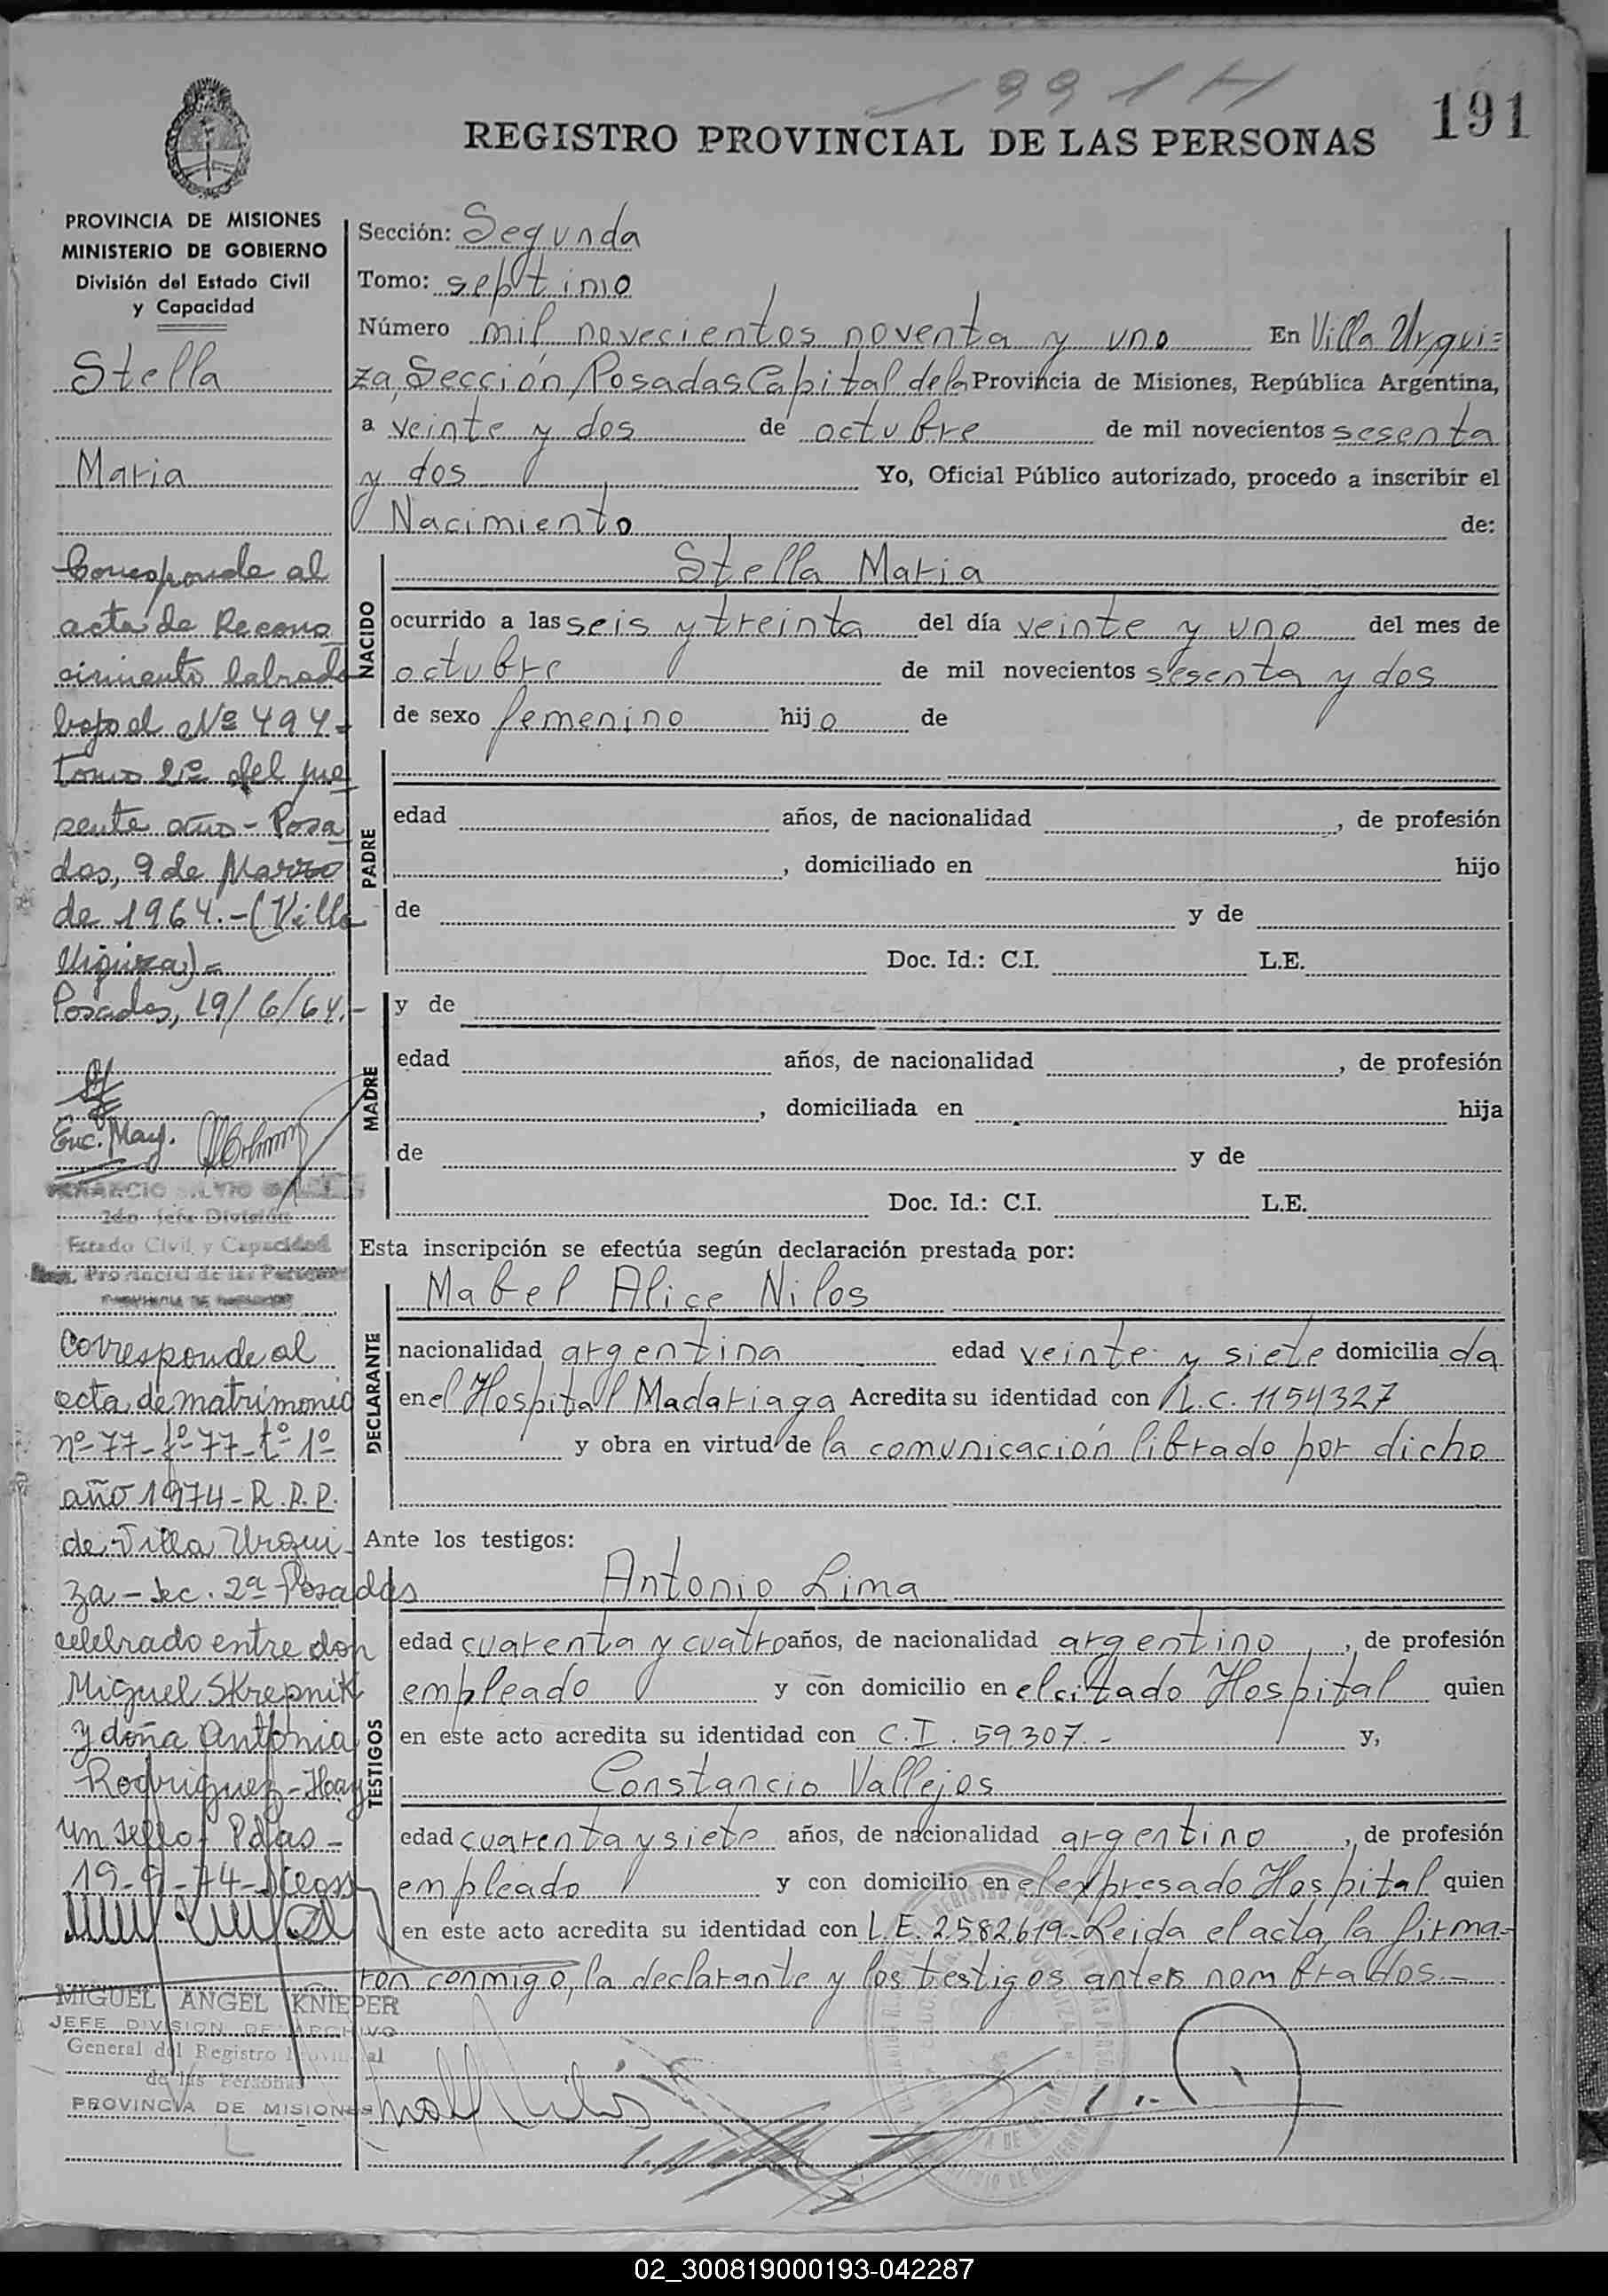 1991 H
191
REGISTRO PROVINCIAL DE LAS PERSONAS
PROVINCIA DE MISIONES
MINISTERIO DE GOBIERNO
División del Estado Civil
y Capacidad
Stella
Maria
Corresponde al
acta de Recono
cimiento labrado
bajo el Nº 494-
Tomo 2º del pre
sente año - Posa
das, 9 de Marzo
de 1964.-(Villa
Urquiza)=
Posadas, 19/6/64.-
Enc. May.
2do Jefe División
Estado Civil y Capacidad
Reg. Provincial de las Personas
PROVINCIA DE MISIONES
Corresponde al
acta de matrimonio
nº 77-fº 77-tº 1º
año 1974-R.P.P.
de Villa Urqui
za - Sec. 2ª Posadas
celebrado entre don
Miguel Skrepnik
y doña Antonia
Rodriguez-Hay
un sello. Pdas-
19-9-74-
MIGUEL ANGEL KNIEPER
JEFE DIVISION DE ARCHIVO
General del Registro Provincial
de las Personas
PROVINCIA DE MISIONES
Sección: Segunda
Tomo: septimo
Número mil novecientos noventa y uno En Villa Urqui=
za, Sección, Posadas Capital de la Provincia de Misiones, República Argentina,
a veinte y dos de octubre de mil novecientos sesenta
y dos Yo, Oficial Público autorizado, procedo a inscribir el
Nacimiento de:
NACIDO
Stella Maria
ocurrido a las seis y treinta del día veinte y uno del mes de
octubre de mil novecientos sesenta y dos
de sexo femenino hijo de
PADRE
edad años, de nacionalidad , de profesión
, domiciliado en hijo
de y de
Doc. Id.: C.I. L.E.
MADRE
y de
edad años, de nacionalidad , de profesión
, domiciliada en hija
de y de
Doc. Id.: C.I. L.E.
Esta inscripción se efectúa según declaración prestada por:
DECLARANTE
Mabel Alice Nilos
nacionalidad argentina edad veinte y siete domiciliada
en el Hospital Madariaga Acredita su identidad con L.C. 1154327
y obra en virtud de la comunicación librado por dicho
Ante los testigos:
TESTIGOS
Antonio Lima
edad cuarenta y cuatro años, de nacionalidad argentino , de profesión
empleado y con domicilio en el citado Hospital quien
en este acto acredita su identidad con C.I. 59.307.- y,
Constancio Vallejos
edad cuarenta y siete años, de nacionalidad argentino , de profesión
empleado y con domicilio en el expresado Hospital quien
en este acto acredita su identidad con L.E. 2.582.619.-Leida el acta, la firma-
ron conmigo, la declarante y los testigos antes nombrados.-
02_300819000193-042287